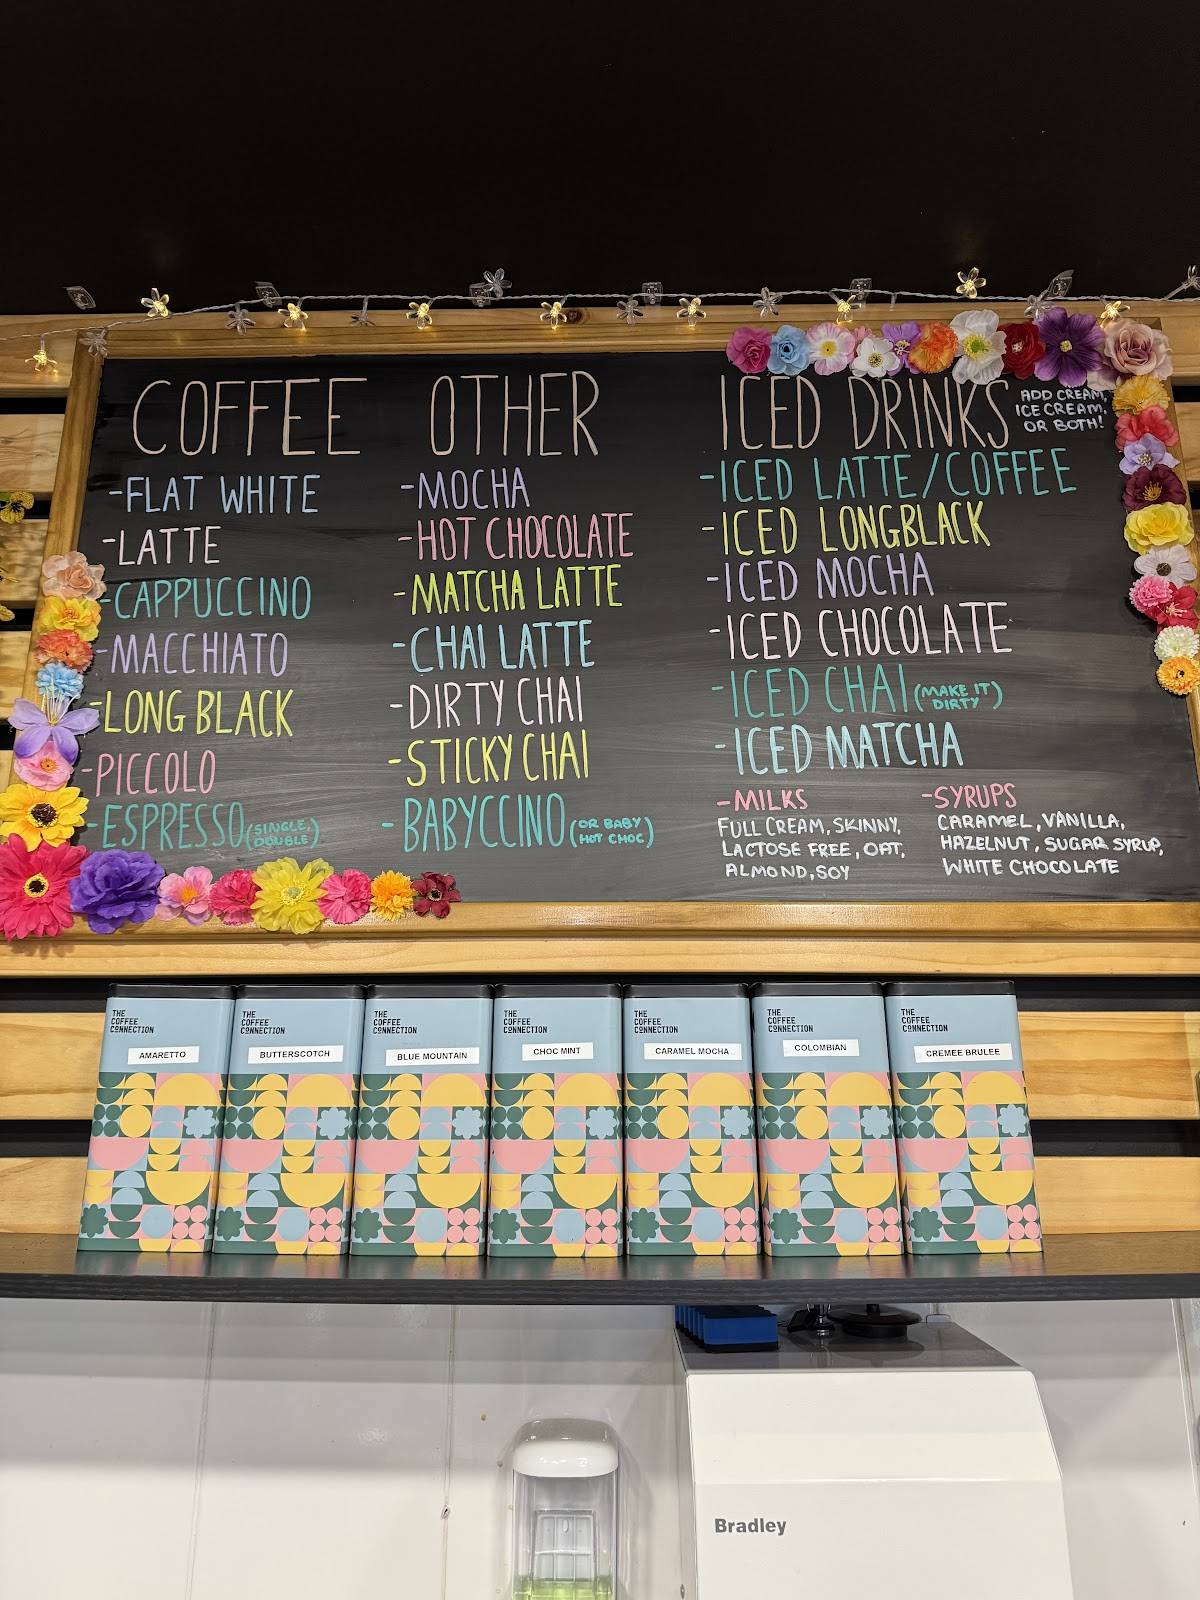 COFFEE
-FLAT WHITE
-LATTE
-CAPPUCCINO
-MACCHIATO
-LONG BLACK
-PICCOLO
-ESPRESSO (SINGLE,
DOUBLE)
OTHER
-MOCHA
-HOT CHOCOLATE
-MATCHA LATTE
-CHAI LATTE
-DIRTY CHAI
-STICKY CHAI
-BABYCCINO (OR BABY
HOT CHOC)
ICED DRINKS
ADD CREAM,
ICE CREAM,
OR BOTH!
-ICED LATTE/COFFEE
-ICED LONGBLACK
-ICED MOCHA
-ICED CHOCOLATE
-ICED CHAI (MAKE IT
DIRTY)
-ICED MATCHA
-MILKS
FULL CREAM, SKINNY,
LACTOSE FREE, OAT,
ALMOND, SOY
-SYRUPS
CARAMEL, VANILLA,
HAZELNUT, SUGAR SYRUP,
WHITE CHOCOLATE
THE
COFFEE
CONNECTION
AMARETTO
THE
COFFEE
CONNECTION
BUTTERSCOTCH
THE
COFFEE
CONNECTION
BLUE MOUNTAIN
THE
COFFEE
CONNECTION
CHOC MINT
THE
COFFEE
CONNECTION
CARAMEL MOCHA
THE
COFFEE
CONNECTION
COLOMBIAN
THE
COFFEE
CONNECTION
CREMEE BRULEE
Bradley